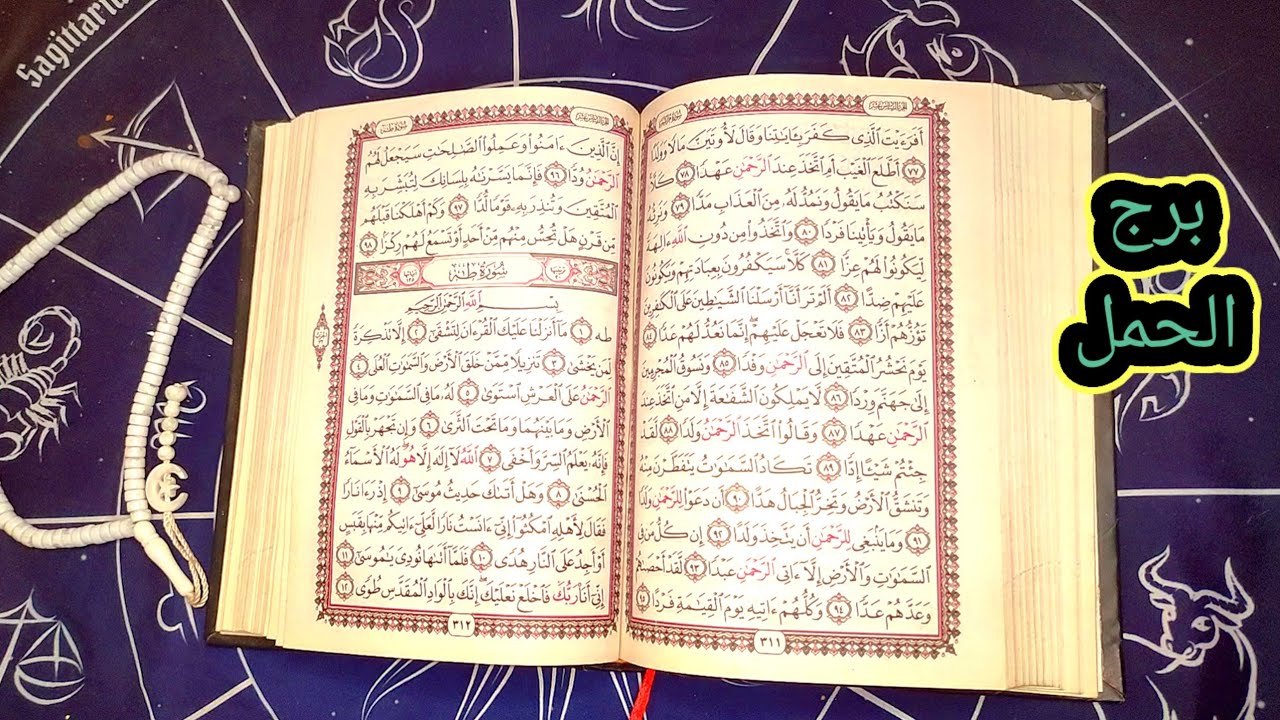 Sagittarius
برج
الحمل
سورة مريم
الجزء السادس عشر
أَفَرَءَيْتَ ٱلَّذِى كَفَرَ بِـَٔايَٰتِنَا وَقَالَ لَأُوتَيَنَّ مَالًا وَوَلَدًا
٧٧ أَطَّلَعَ ٱلْغَيْبَ أَمِ ٱتَّخَذَ عِندَ ٱلرَّحْمَٰنِ عَهْدًا ٧٨ كَلَّا
سَنَكْتُبُ مَا يَقُولُ وَنَمُدُّ لَهُۥ مِنَ ٱلْعَذَابِ مَدًّا ٧٩ وَنَرِثُهُۥ
مَا يَقُولُ وَيَأْتِينَا فَرْدًا ٨٠ وَٱتَّخَذُوا۟ مِن دُونِ ٱللَّهِ ءَالِهَةً
لِّيَكُونُوا۟ لَهُمْ عِزًّا ٨١ كَلَّا سَيَكْفُرُونَ بِعِبَادَتِهِمْ وَيَكُونُونَ
عَلَيْهِمْ ضِدًّا ٨٢ أَلَمْ تَرَ أَنَّآ أَرْسَلْنَا ٱلشَّيَٰطِينَ عَلَى ٱلْكَٰفِرِينَ
تَؤُزُّهُمْ أَزًّا ٨٣ فَلَا تَعْجَلْ عَلَيْهِمْ إِنَّمَا نَعُدُّ لَهُمْ عَدًّا ٨٤
يَوْمَ نَحْشُرُ ٱلْمُتَّقِينَ إِلَى ٱلرَّحْمَٰنِ وَفْدًا ٨٥ وَنَسُوقُ ٱلْمُجْرِمِينَ
إِلَىٰ جَهَنَّمَ وِرْدًا ٨٦ لَّا يَمْلِكُونَ ٱلشَّفَٰعَةَ إِلَّا مَنِ ٱتَّخَذَ عِندَ
ٱلرَّحْمَٰنِ عَهْدًا ٨٧ وَقَالُوا۟ ٱتَّخَذَ ٱلرَّحْمَٰنُ وَلَدًا ٨٨ لَّقَدْ
جِئْتُمْ شَيْـًٔا إِدًّا ٨٩ تَكَادُ ٱلسَّمَٰوَٰتُ يَتَفَطَّرْنَ مِنْهُ
وَتَنشَقُّ ٱلْأَرْضُ وَتَخِرُّ ٱلْجِبَالُ هَدًّا ٩٠ أَن دَعَوْا۟ لِلرَّحْمَٰنِ وَلَدًا
٩١ وَمَا يَنۢبَغِى لِلرَّحْمَٰنِ أَن يَتَّخِذَ وَلَدًا ٩٢ إِن كُلُّ مَن فِى
ٱلسَّمَٰوَٰتِ وَٱلْأَرْضِ إِلَّآ ءَاتِى ٱلرَّحْمَٰنِ عَبْدًا ٩٣ لَّقَدْ أَحْصَىٰهُمْ
وَعَدَّهُمْ عَدًّا ٩٤ وَكُلُّهُمْ ءَاتِيهِ يَوْمَ ٱلْقِيَٰمَةِ فَرْدًا ٩٥
٣١١
الجزء السادس عشر
سورة طه
إِنَّ ٱلَّذِينَ ءَامَنُوا۟ وَعَمِلُوا۟ ٱلصَّٰلِحَٰتِ سَيَجْعَلُ لَهُمُ
ٱلرَّحْمَٰنُ وُدًّا ٩٦ فَإِنَّمَا يَسَّرْنَٰهُ بِلِسَانِكَ لِتُبَشِّرَ بِهِ
ٱلْمُتَّقِينَ وَتُنذِرَ بِهِۦ قَوْمًا لُّدًّا ٩٧ وَكَمْ أَهْلَكْنَا قَبْلَهُم
مِّن قَرْنٍ هَلْ تُحِسُّ مِنْهُم مِّنْ أَحَدٍ أَوْ تَسْمَعُ لَهُمْ رِكْزًۢا ٩٨
سُورَةُ طه
بِسْمِ ٱللَّهِ ٱلرَّحْمَٰنِ ٱلرَّحِيمِ
طه ١ مَآ أَنزَلْنَا عَلَيْكَ ٱلْقُرْءَانَ لِتَشْقَىٰٓ ٢ إِلَّا تَذْكِرَةً
لِّمَن يَخْشَىٰ ٣ تَنزِيلًا مِّمَّنْ خَلَقَ ٱلْأَرْضَ وَٱلسَّمَٰوَٰتِ ٱلْعُلَى ٤
ٱلرَّحْمَٰنُ عَلَى ٱلْعَرْشِ ٱسْتَوَىٰ ٥ لَهُۥ مَا فِى ٱلسَّمَٰوَٰتِ وَمَا فِى
ٱلْأَرْضِ وَمَا بَيْنَهُمَا وَمَا تَحْتَ ٱلثَّرَىٰ ٦ وَإِن تَجْهَرْ بِٱلْقَوْلِ
فَإِنَّهُۥ يَعْلَمُ ٱلسِّرَّ وَأَخْفَى ٧ ٱللَّهُ لَآ إِلَٰهَ إِلَّا هُوَ لَهُ ٱلْأَسْمَآءُ
ٱلْحُسْنَىٰ ٨ وَهَلْ أَتَىٰكَ حَدِيثُ مُوسَىٰٓ ٩ إِذْ رَءَا نَارًا
فَقَالَ لِأَهْلِهِ ٱمْكُثُوٓا۟ إِنِّىٓ ءَانَسْتُ نَارًا لَّعَلِّىٓ ءَاتِيكُم مِّنْهَا بِقَبَسٍ
أَوْ أَجِدُ عَلَى ٱلنَّارِ هُدًى ١٠ فَلَمَّآ أَتَىٰهَا نُودِىَ يَٰمُوسَىٰٓ ١١
إِنِّىٓ أَنَا۠ رَبُّكَ فَٱخْلَعْ نَعْلَيْكَ إِنَّكَ بِٱلْوَادِ ٱلْمُقَدَّسِ طُوًى ١٢
٣١٢